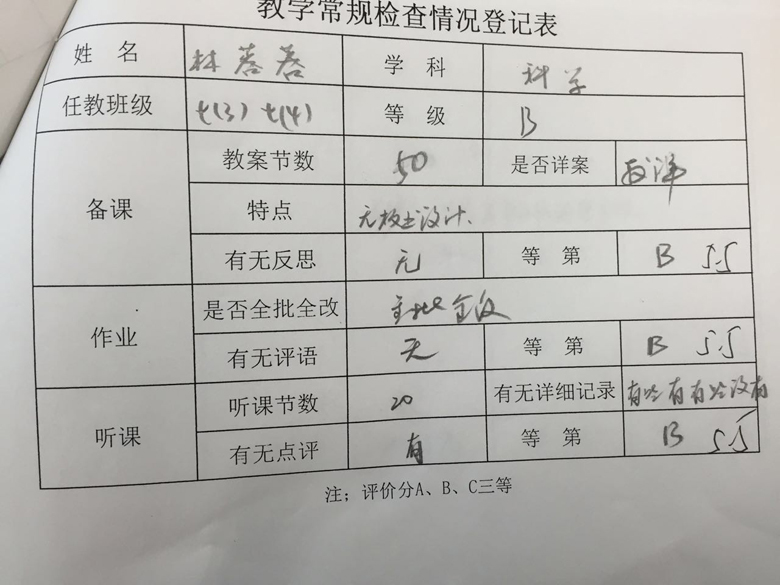 教学常规检查情况登记表
姓 名 林蓉蓉 学 科 科学
任教班级 七(3) 七(4) 等 级 B
备课 教案节数 50 是否详案
特点 无板书设计.
有无反思 无 等 第 B 5.5
作业 是否全批全改 全批全改
有无评语 无 等 第 B 5.5
听课 听课节数 20 有无详细记录 有些有有些没有
有无点评 有 等 第 B 5.5
注；评价分A、B、C三等